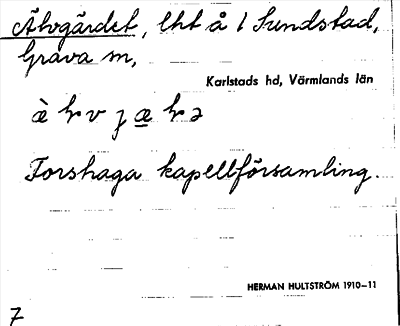 Älvgärdet, lht å 1 Sundstad,
Grava sn,
Karlstads hd, Värmlands län
Forshaga kapellförsamling.
HERMAN HULTSTRÖM 1910–11
7